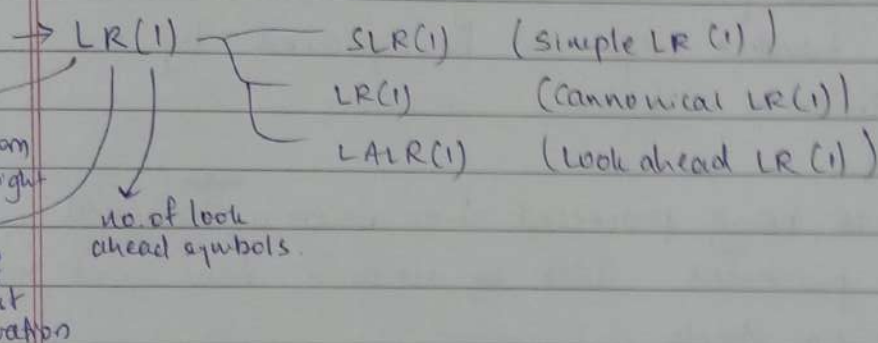 → LR(1) SLR(1) (Simple LR (1))
LR(1) (Cannonical LR(1))
LALR(1) (Look ahead LR (1))
no. of look
ahead symbols.